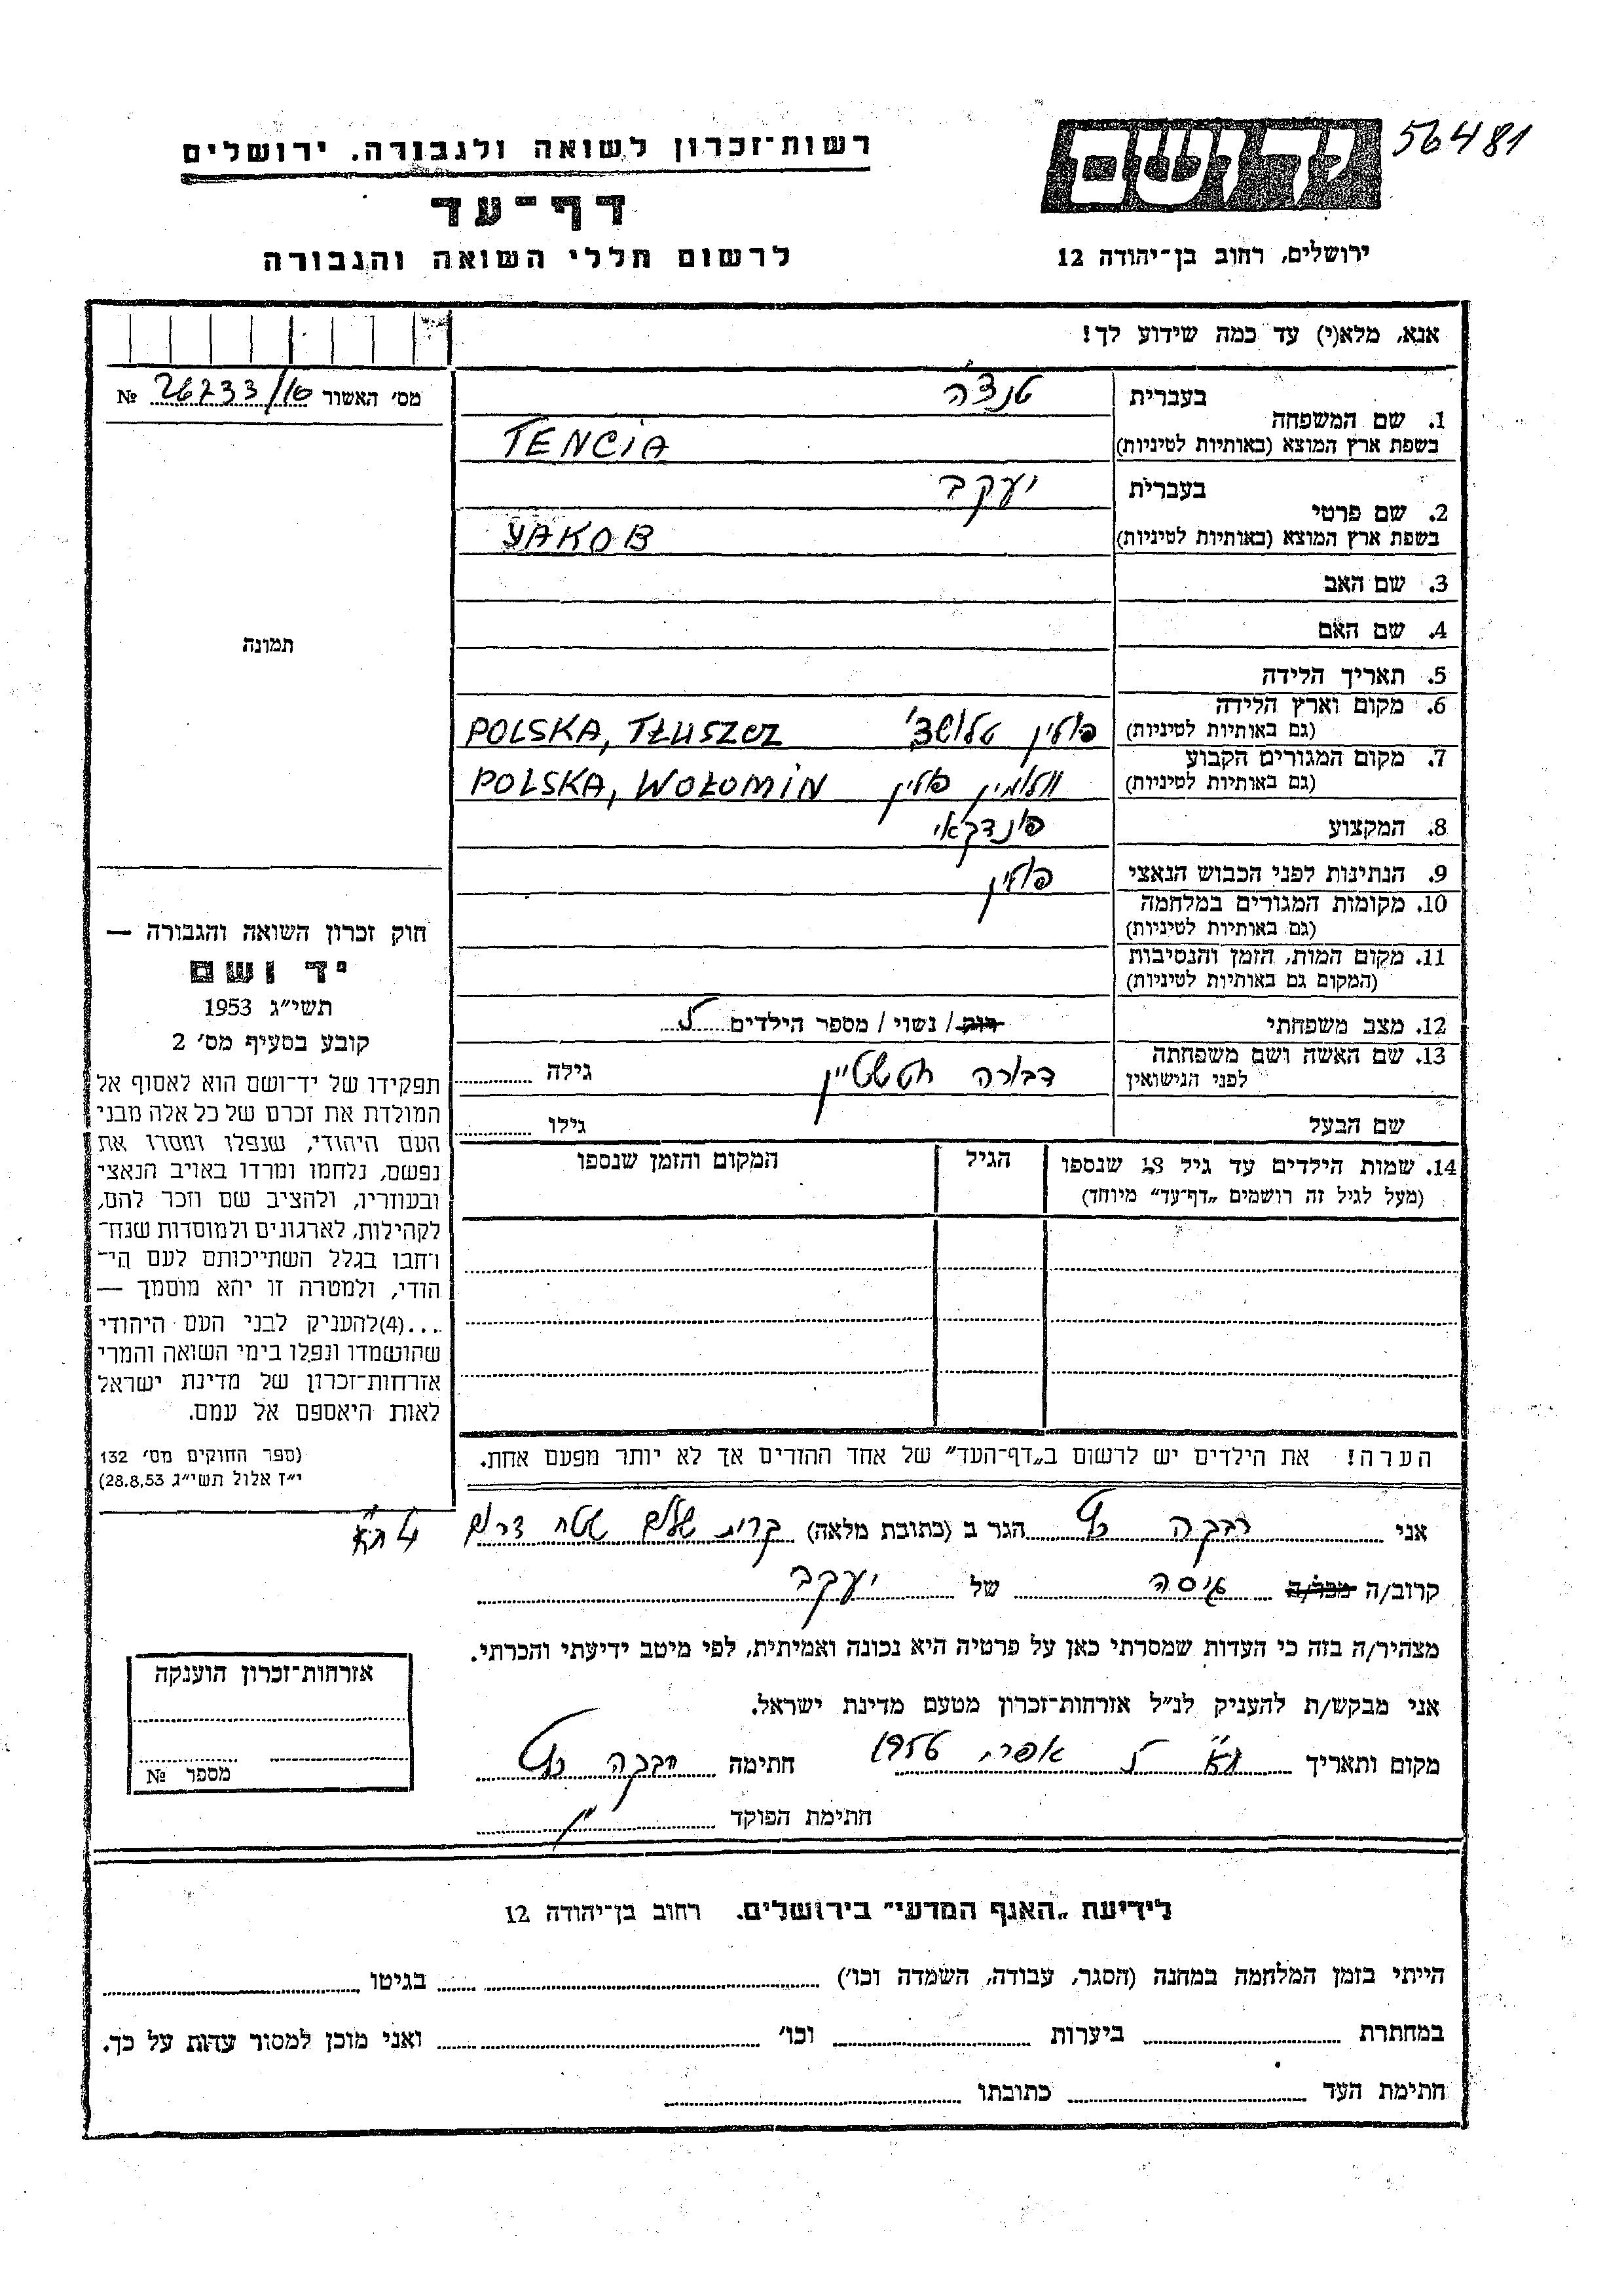 56481
יד ושם
רשות־זכרון לשואה ולגבורה. ירושלים
דף־עד
לרשום חללי השואה והגבורה
ירושלים, רחוב בן־יהודה 12
אנא, מלא(י) עד כמה שידוע לך!
מס׳ האשור 26733/10 №
1. שם המשפחה בעברית טנצ׳ה
בשפת ארץ המוצא (באותיות לטיניות) TENCIA
2. שם פרטי בעברית יעקב
בשפת ארץ המוצא (באותיות לטיניות) YAKOB
3. שם האב
4. שם האם
5. תאריך הלידה
6. מקום וארץ הלידה פולין טלושצ׳ POLSKA, TŁUSZCZ
(גם באותיות לטיניות)
7. מקום המגורים הקבוע וולומין פולין POLSKA, WOŁOMIN
(גם באותיות לטיניות)
8. המקצוע פונדקאי
9. הנתינות לפני הכבוש הנאצי פולין
10. מקומות המגורים במלחמה
(גם באותיות לטיניות)
11. מקום המות, הזמן והנסיבות
(המקום גם באותיות לטיניות)
12. מצב משפחתי רווק / נשוי / מספר הילדים
13. שם האשה ושם משפחתה דבורה גילה
לפני הנישואין
שם הבעל גילו
14. שמות הילדים עד גיל 18 שנספו הגיל המקום והזמן שנספו
(מעל לגיל זה רושמים „דף־עד” מיוחד)
הערה! את הילדים יש לרשום ב„דף־העד” של אחד ההורים אך לא יותר מפעם אחת.
תמונה
חוק זכרון השואה והגבורה —
יד ושם
תשי״ג 1953
קובע בסעיף מס׳ 2
תפקידו של יד־ושם הוא לאסוף אל
המולדת את זכרם של כל אלה מבני
העם היהודי, שנפלו ומסרו את
נפשם, נלחמו ומרדו באויב הנאצי
ובעוזריו, ולהציב שם וזכר להם,
לקהילות, לארגונים ולמוסדות שנח־
רחבו בגלל השתייכותם לעם הי־
הודי, ולמטרה זו יהא מוסמך —
...(4)להעניק לבני העם היהודי
שהושמדו ונפלו בימי השואה והמרי
אזרחות־זכרון של מדינת ישראל
לאות היאספם אל עמם.
(ספר החוקים מס׳ 132
י״ז אלול תשי״ג 28.8.53)
אני רבקה הגר ב (כתובת מלאה) קרית שלום ת״א
קרוב/ה מכר/ה גיסה של יעקב
מצהיר/ה בזה כי העדות שמסרתי כאן על פרטיה היא נכונה ואמיתית, לפי מיטב ידיעתי והכרתי.
אני מבקש/ת להעניק לנ״ל אזרחות־זכרון מטעם מדינת ישראל.
מקום ותאריך ת״א 1956 חתימה רבקה
חתימת הפוקד
אזרחות־זכרון הוענקה
מספר №
לידיעת „האגף המדעי” בירושלים. רחוב בן־יהודה 12
הייתי בזמן המלחמה במחנה (הסגר, עבודה, השמדה וכו׳) בגיטו
במחתרת ביערות וכו׳ ואני מוכן למסור עדות על כך.
חתימת העד כתובתו